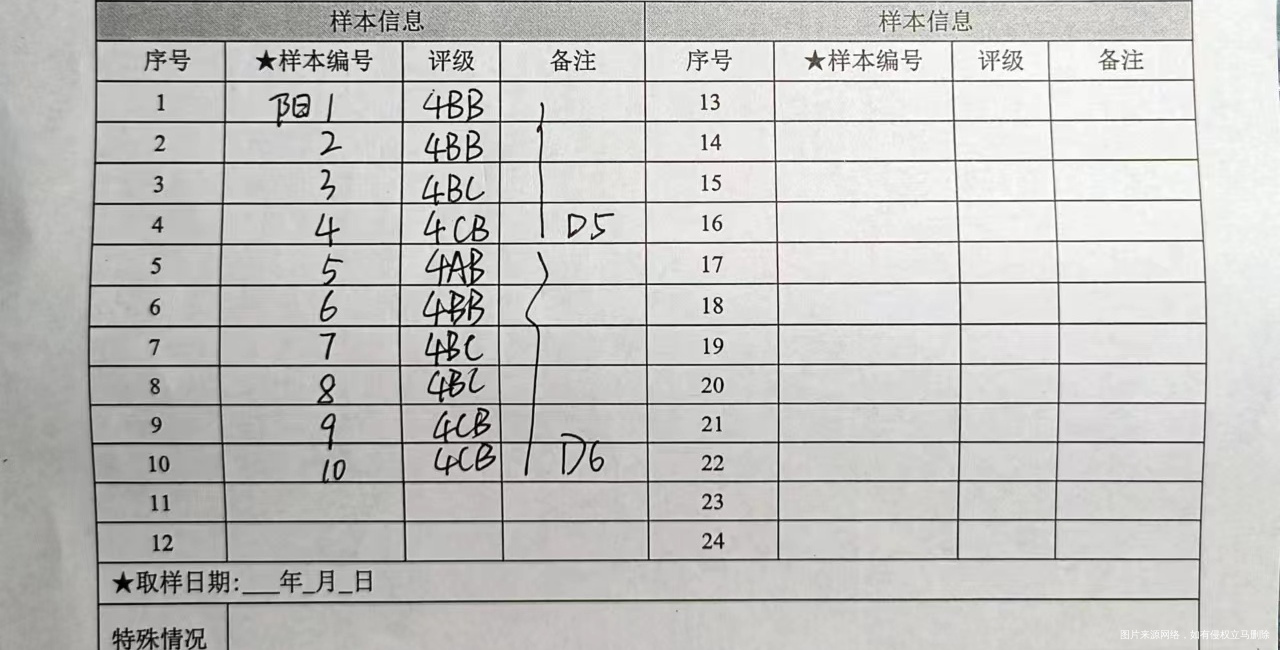 样本信息 样本信息
序号 ★样本编号 评级 备注 序号 ★样本编号 评级 备注
1 阳1 4BB 13
2 2 4BB 14
3 3 4BC 15
4 4 4CB D5 16
5 5 4AB 17
6 6 4BB 18
7 7 4BC 19
8 8 4BC 20
9 9 4CB 21
10 10 4CB D6 22
11 23
12 24
★取样日期:___年_月_日
特殊情况
图片来源网络，如有侵权立马删除